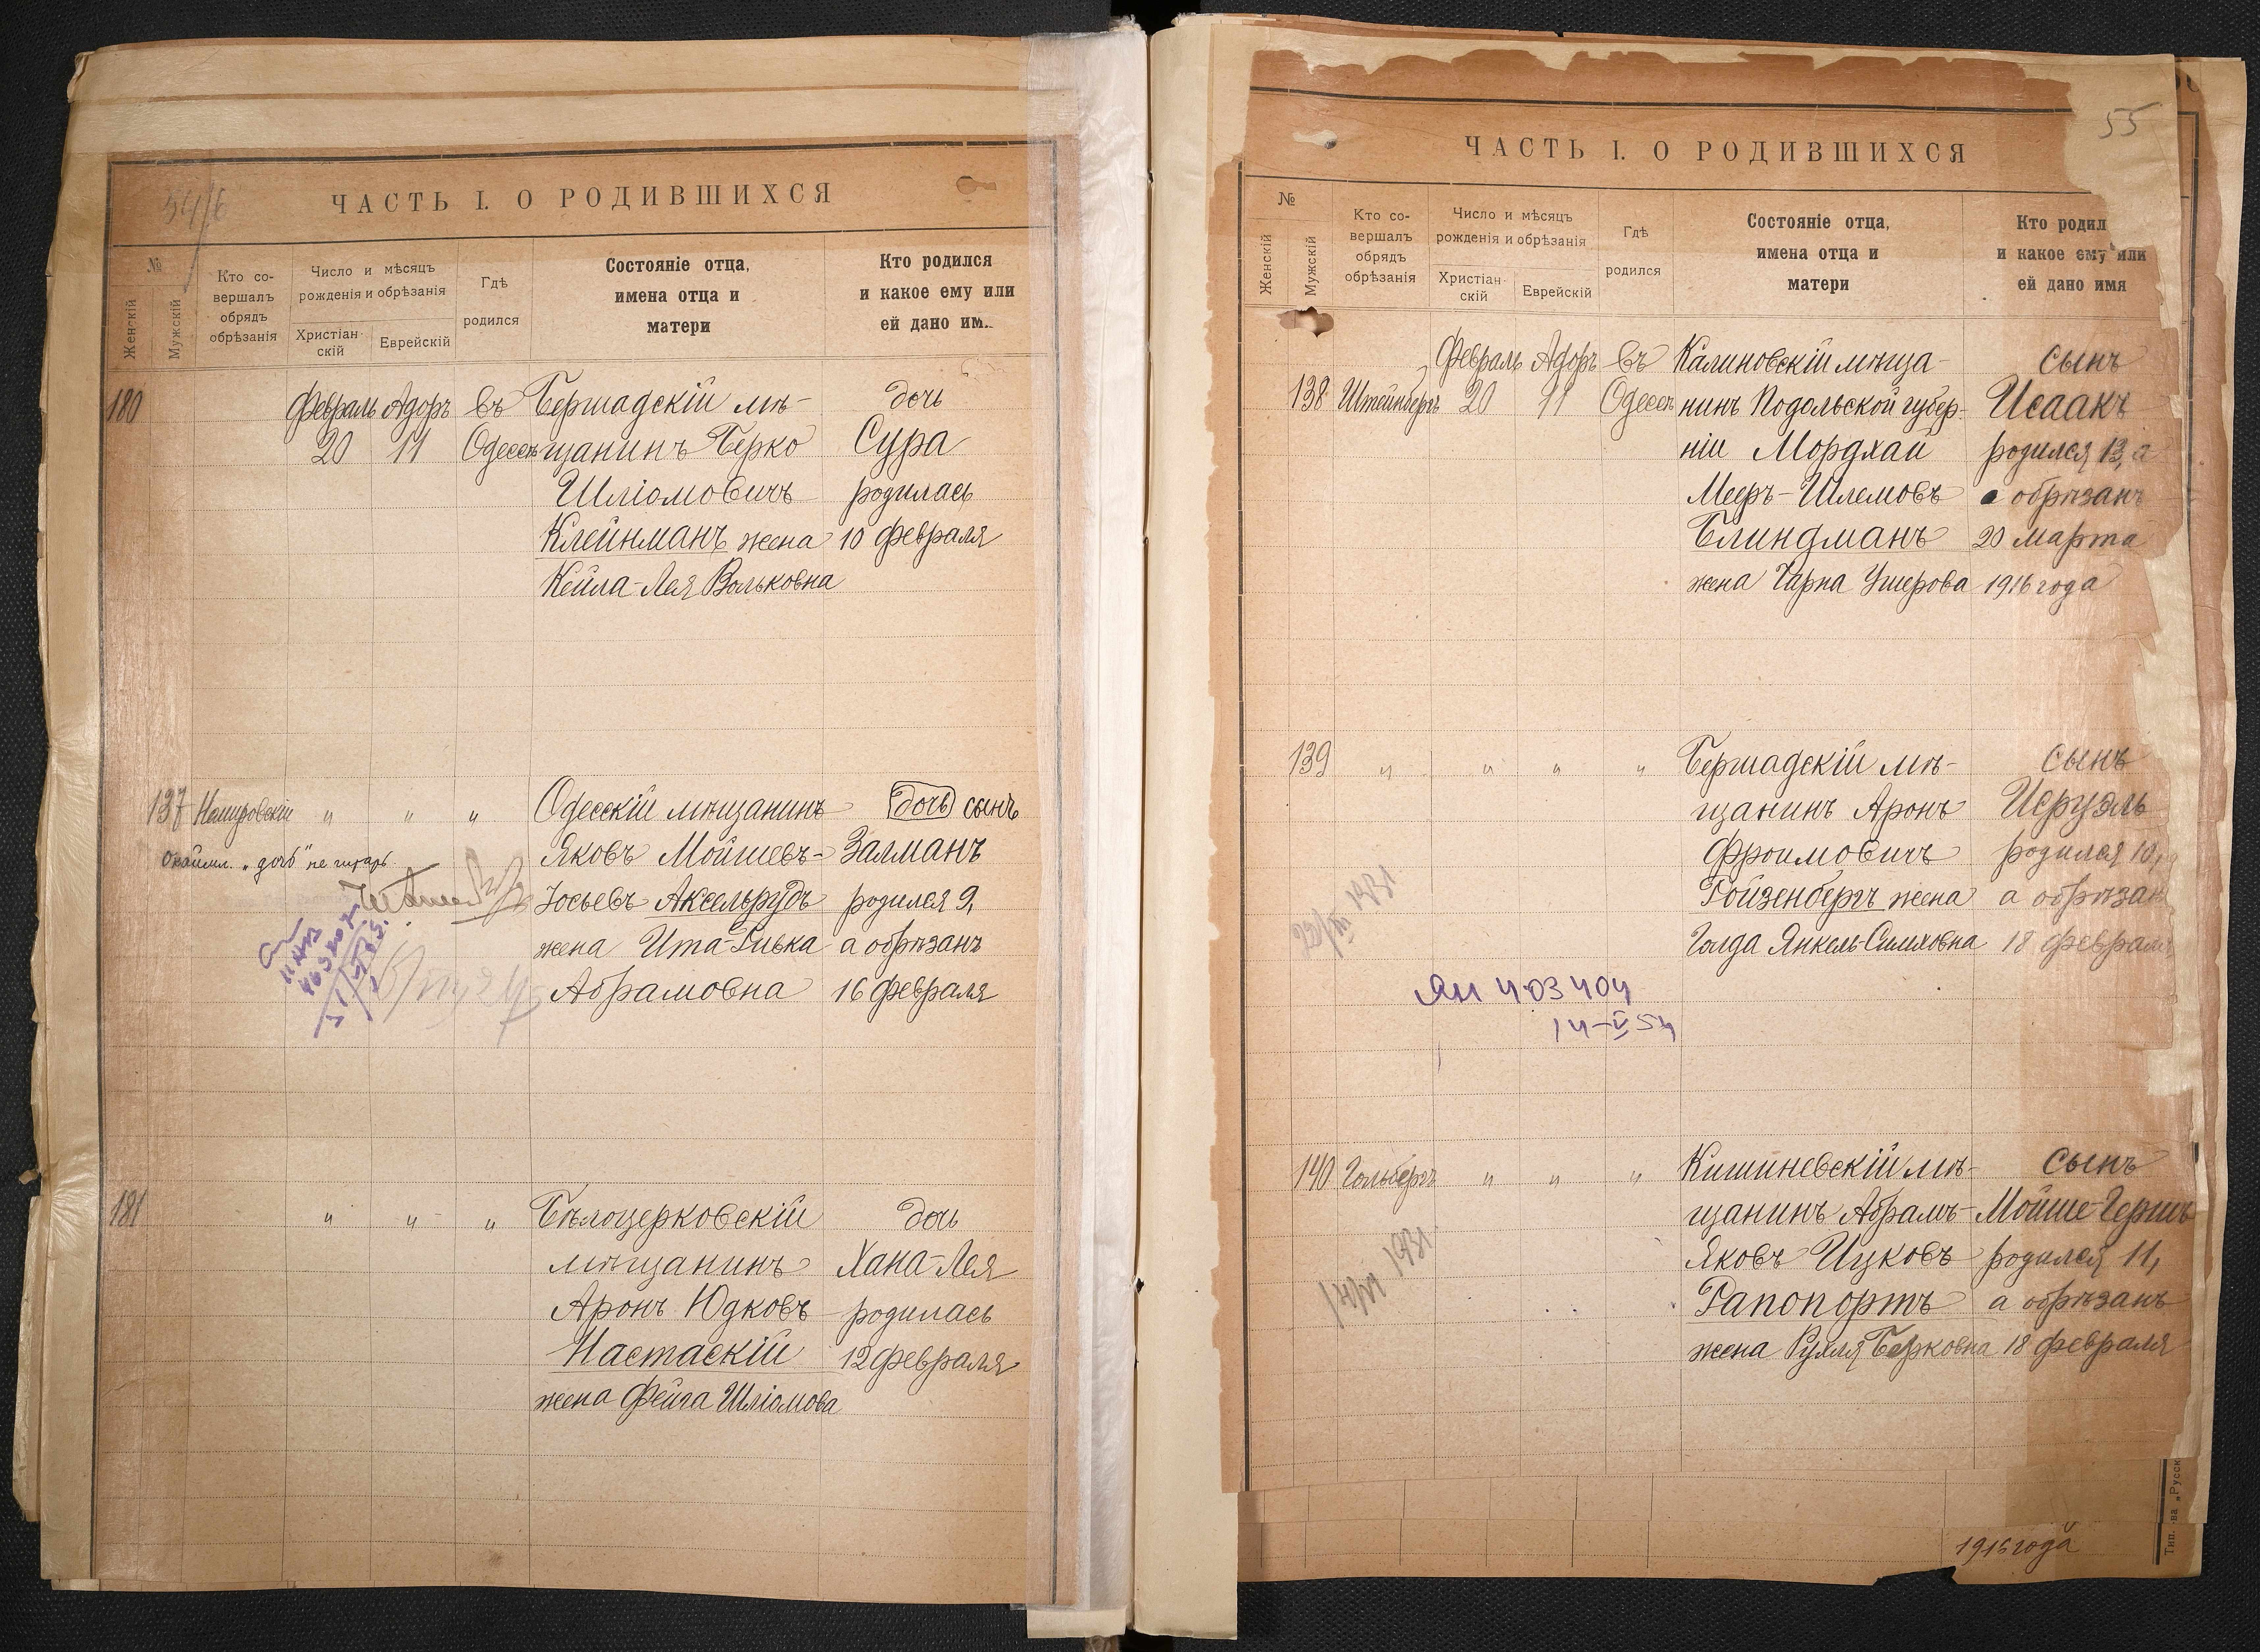 54/б
ЧАСТЬ I. О РОДИВШИХСЯ
№
Женскій
Мужскій
Кто со-
вершалъ
обрядъ
обрѣзанія
Число и мѣсяцъ
рожденія и обрѣзанія
Христіан-
скій
Еврейскій
Гдѣ
родился
Состояніе отца,
имена отца и
матери
Кто родился
и какое ему или
ей дано им
180 Февраль Адоръ въ Бершадскій мѣ- дочь
20 11 Одессѣ щанинъ Берко Сура
Шліомовичъ родилась
Клейнманъ жена 10 февраля
Кейла-Лея Вольковна
137 Немировскій " " " Одесскій мѣщанинъ дочь сынъ
Окаймл. „дочь" не читать Яковъ Мойшевъ- Залманъ
Іосьевъ Аксельрудъ родился 9,
жена Ита-Ривка а обрѣзанъ
Абрамовна 16 февраля
181 " " " Бѣлоцерковскій дочь
мѣщанинъ Хана-Лея
Аронъ Юдковъ родилась
Настаскій 12 февраля
жена Фейга Шліомова
55
ЧАСТЬ I. О РОДИВШИХСЯ
№
Женскій
Мужскій
Кто со-
вершалъ
обрядъ
обрѣзанія
Число и мѣсяцъ
рожденія и обрѣзанія
Христіан-
скій
Еврейскій
Гдѣ
родился
Состояніе отца,
имена отца и
матери
Кто родил
и какое ему или
ей дано имя
Февраль Адоръ въ Калиновскій мѣща- сынъ
138 Штейнбергъ 20 11 Одессѣ нинъ Подольской губер- Исаакъ
ніи Мордхай родился 13, а
Мееръ-Шлемовъ обрѣзанъ
Блиндманъ 20 марта
жена Чарна Ушерова 1916 года
139 " " " " Бершадскій мѣ- сынъ
щанинъ Аронъ Исруэль
Фроимовичъ родился 10,
Ройзенбергъ жена а обрѣзан
Голда Янкель-Симховна 18 феврал
1931
ЯП 403404
14-V 54
140 Гольбергъ " " " Кишиневскій мѣ- сынъ
щанинъ Абрамъ- Мойше-Гершъ
Яковъ Ицковъ родился 11,
1931
Рапопортъ а обрѣзанъ
жена Рухля Берковна 18 февраля
1916 года
Тип. -ва „Русск